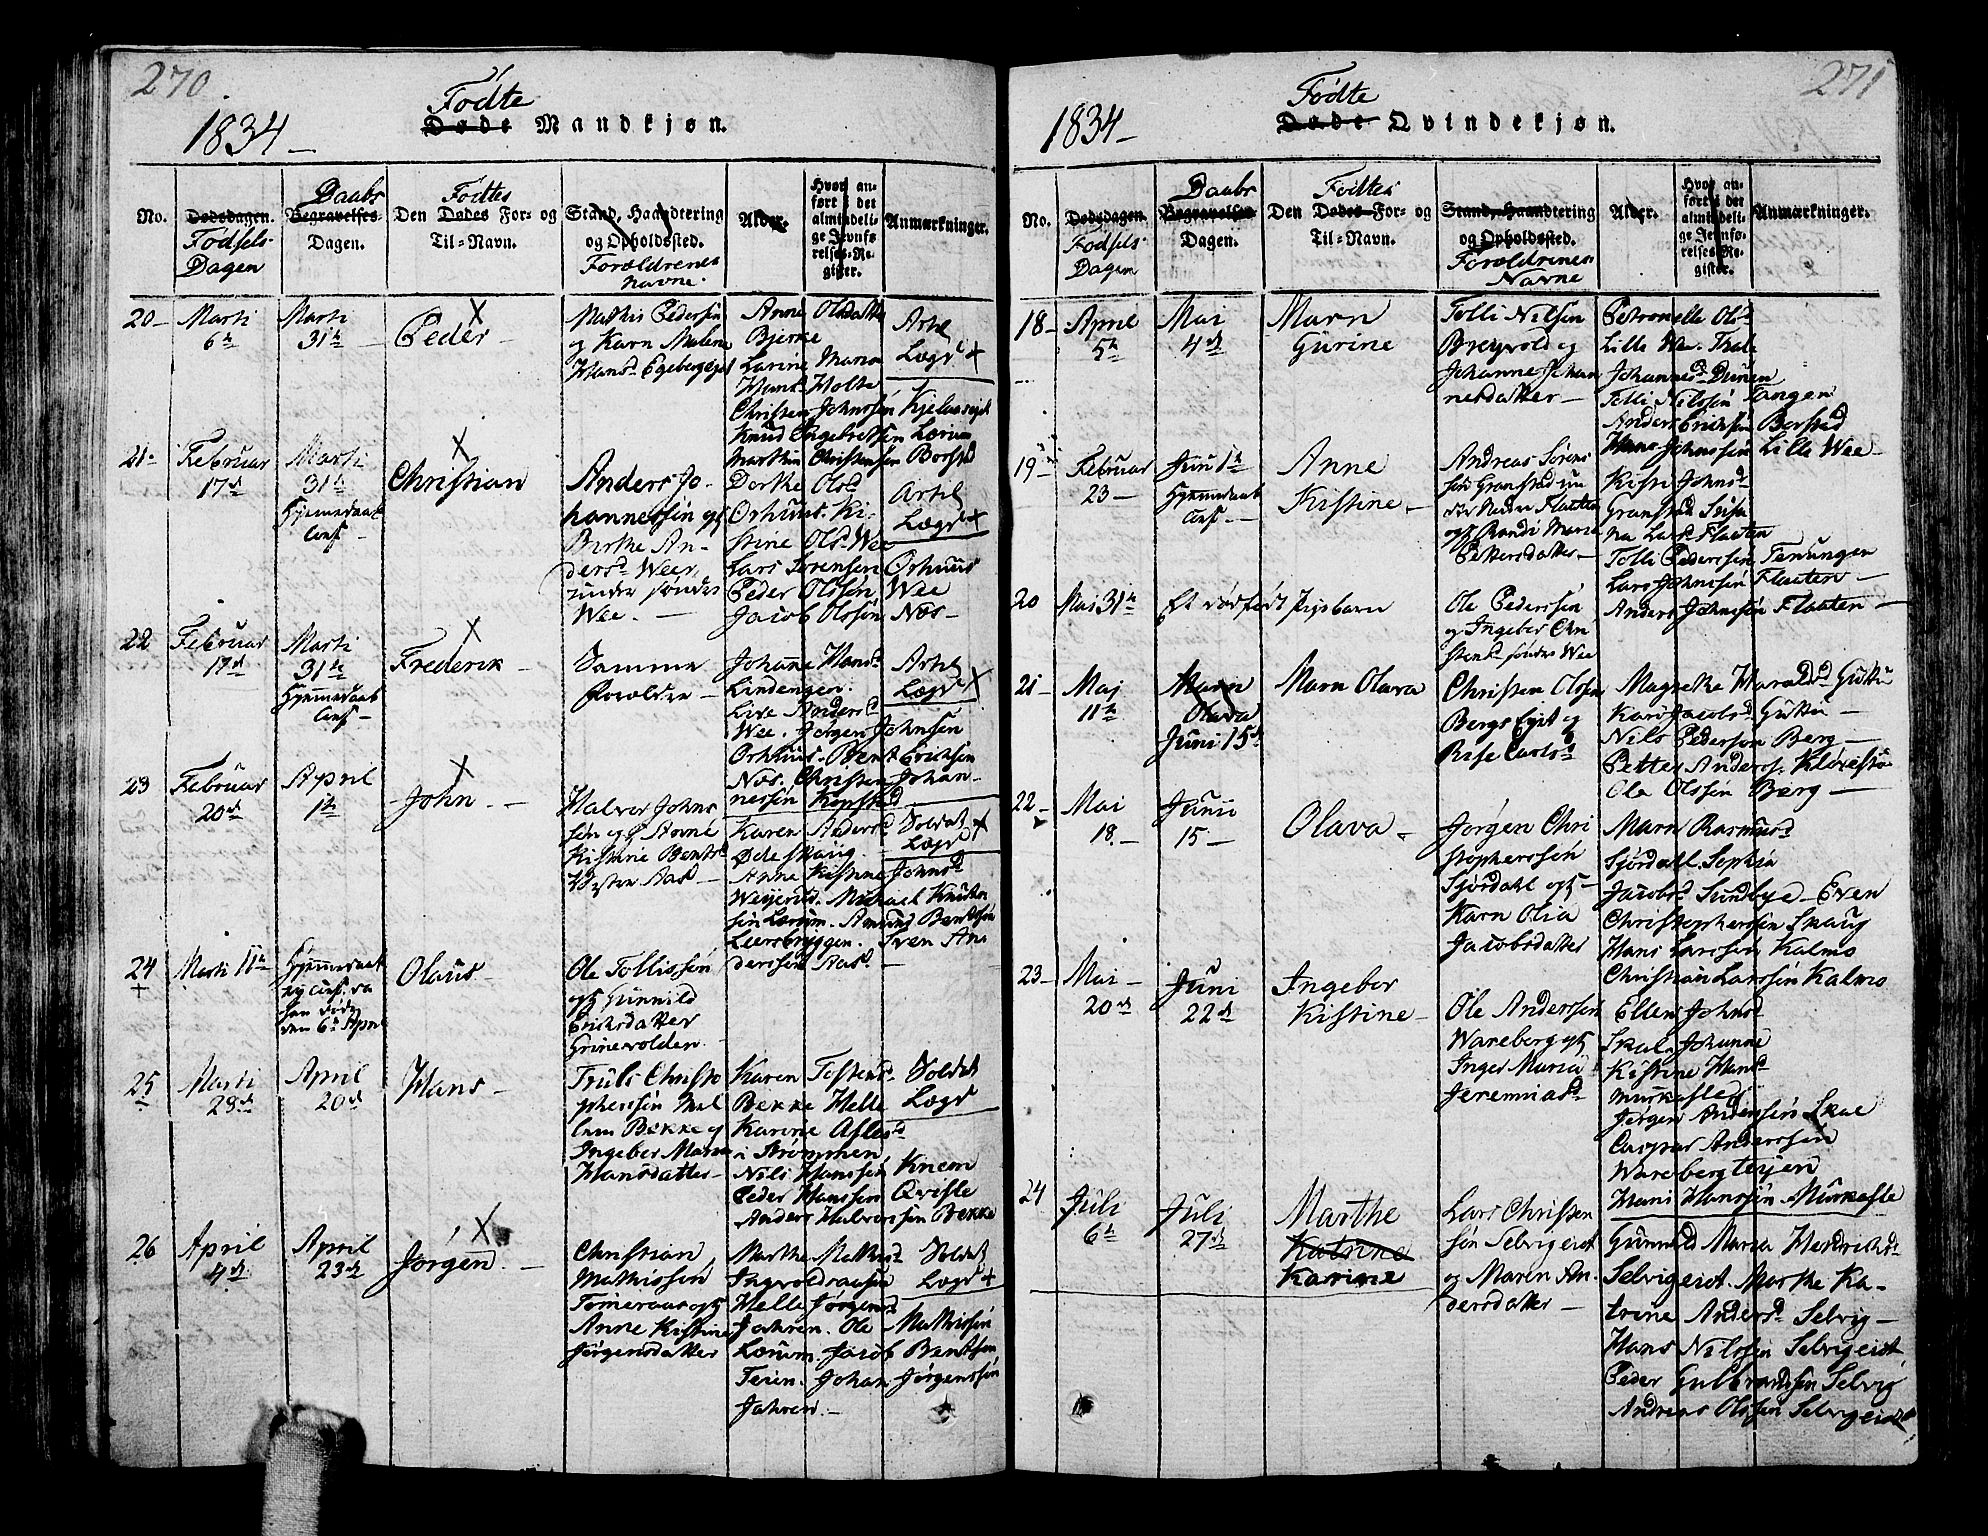 270
1834 –
Fødte
Døde Mandkjøn.
No.
Dødsdagen.
Fødsels
Dagen
Daabs
Begravelses-
Dagen.
Fødtes
Den Dødes For- og
Til-Navn.
Stand, Haandtering
og Opholdssted.
Forældrenes
Navne.
Alder.
Hvor an-
ført i det
almindeli-
ge Jevnfø-
relses-Re-
gister.
Anmærkninger.
20 –
Marti
6te
Marti
31te
Peder –
Mathis Pedersen
og Karn Malene
Hansd. Egebergeget
Anne Olsdatter
Bjerke
Larine Maria
Hansd. Holte
Christen Johnssøn Kjelaasejet
Knud Ingebretsen Lærum
Marthin Christensen Borsted
Lægd
21 –
Februar
17d
Marti
31te
Hjemmedaab
Conf –
Christian
Anders Jo-
hannessøn og
Birthe An-
dersd. Weer,
under søndre
Wee. –
Dorthe Olsd.
Orhuus. Ki-
stine Olsd. Wee
Lars Sørensen Orhuus
Peder Olssøn Wee
Jacob Olssøn Næs –
Lægd
22
Februar
17d
Marti
31te
Hjemmedaab
Conf –
Frederik –
Samme
Forældre –
Johanne Hansd.
Lindengen.
Live Andersd.
Wee. Jørgen Johnsen
Orhuus. Bent Erichsen
Næs. Christen Johan-
nessøn Kopstad
Lægd
23
Februar
20d
April
1te
John. –
Halvor Johns
søn og Anne
Kistine Bentsd.
Vestre Aas –
Karen Andersd.
Ødeskaug.
Anne Kistine Johnsd.
Weyerud. Michael Knuts
søn Lærum. Amund Bentsøn
Leersbryggen. Sven An
derssøn Aas. –
Soldat
Lægd
24
Marti 11te
Hjemmedaab
den 6te April
Olaus –
Ole Tollissøn
og Gunnild
Erichsdatter
Grinevolden.
25
Marti
23d
April
20d
Hans –
Truls Christo
phersøn Mel
lem Bekke og
Ingebor Maria
Hansdatter –
Karen Tostensd.
Bekke Helle
Karine Aslesd.
i Strømmen,
Nils Hanssøn Knem
Peder Hanssøn Qvisle
Anders Halvorssøn Bekke
Soldat
Lægd
26
April
4d
April
23d
Jørgen –
Christian
Mathissøn
Tømeraas og
Anne Kistine
Jørgensdatter
Marthe Mathisd.
Ingvoldrausen
Helle Jørgensd.
Jahren. Ole Mathissøn
Lærum. Jacob Bentsøn
Teien. Johan Jørgenssøn
Jahren –
Soldat
Lægd
271
1834 –
Fødte
Døde Qvindekjøn.
No.
Dødsdagen.
Fødsels-
Dagen
Daabs
Begravelses-
Dagen.
Fødtes
Den Dødes For- og
Til-Navn.
Stand, Haandtering
og Opholdssted.
Forældrenes
Navne
Alder.
Hvor an-
ført i det
almindeli-
ge Jevnfø-
relses-Re-
gister.
Anmærkninger.
18 –
April
5te
Mai
4d
Marn
Gurine
Tolli Nilsen
Breyvold og
Johanne Johan
nesdatter –
Petronelle Olsd.
Lille Wee. Thale
Johannesd. Dunen
Tolli Nilssøn Tangen
Anders Erichsen Borsted
Hans Johnssøn Lille Wee –
19 –
Februar
23 –
Juni 1te
Hjemmedaab
Conf –
Anne
Kistine –
Andreas Sørens
søn Granstad un
der Nedre Flaatten
og Randi Marie
Pettersdatter –
Kisti Johnsd.
Granstad
Larsd. Flaaten
Tolli Pederssøn Tenungen
Lars Johnssøn Flaaten –
Anders Johnssøn Flaaten –
20
Mai 31te
Et dødfødt Pigebarn
Ole Pederssøn
og Ingebor Chri
stensd. søndre Wee
21 –
Maj
11te
Marn
Olava
Juni 15d
Marn Olava
Christen Olssøn
Bergs Ejet og
Risse Carlsd.
Magrethe Haraldsd. Guttu
Kari Jacobsd. Guttu –
Nils Pederson Berg –
Petter Anderss. Kløvestø
Ole Olssøn Berg –
22 –
Mai
18. –
Junii
15 –
Olava –
Jørgen Chri
stopherssøn
Sjørdahl og
Karn Olia
Jacobsdatter
Marn Rasmusd.
Sjørdahl. Sophia
Jacobsd. Sundbye – Even
Christopherssøn Skaug
Hans Larssøn Kalmo
Christian Larssøn Kalmo
23 –
Mai –
20d
Juni
22d
Ingebor
Kistine –
Ole Anderssøn
Wareberg og
Inger Maria
Jeremiasd.
Ellen Johnsd.
Skal. Johanne
Kistine Hansd.
Murkasle
Jørgen Anderssøn Skal
Casper Anderssøn
Warebergteyen
Hans Hanssøn Murkasle
24
Juli
6te
Juli
27d
Marthe
Katrine
Karine
Lars Christen
søn Selvigeiet
og Maren An-
dersdatter –
Gunnild Maria Hendrichsd.
Selvigeiet. Marthe Ka-
trine Andersd. Selvig –
Hans Nilssøn Selvigeiet
Peder Gulbrandsen Selvig
Andreas Olssøn Selvigeiet